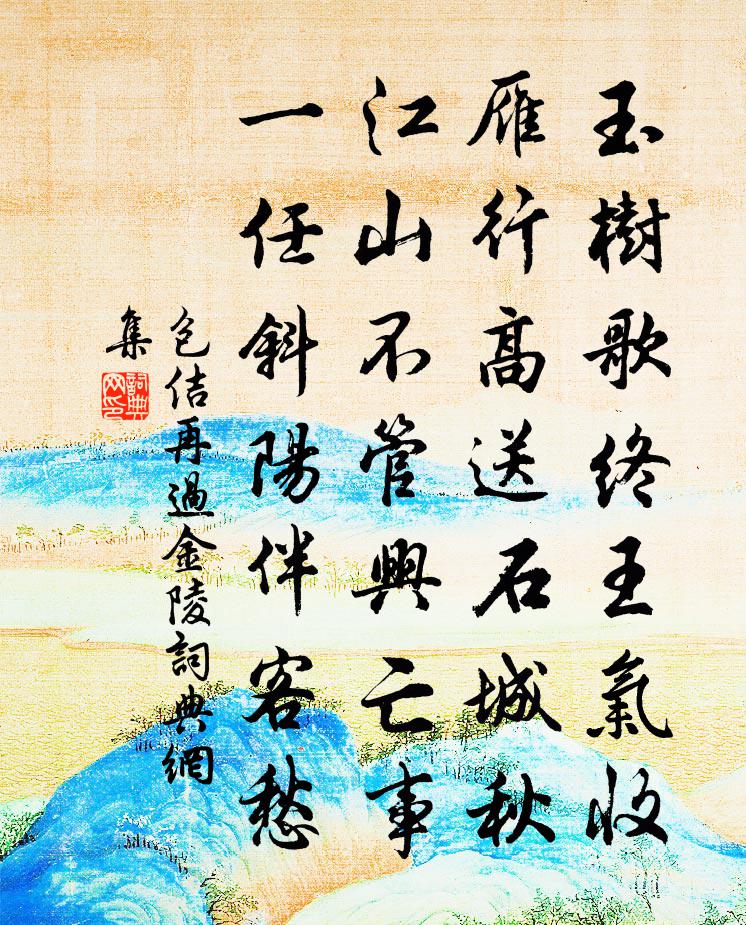 玉樹歌終王氣收
雁行高送石城秋
江山不管興亡事
一任斜陽伴客愁
包佶再過金陵詞典網
集
詞典
网印